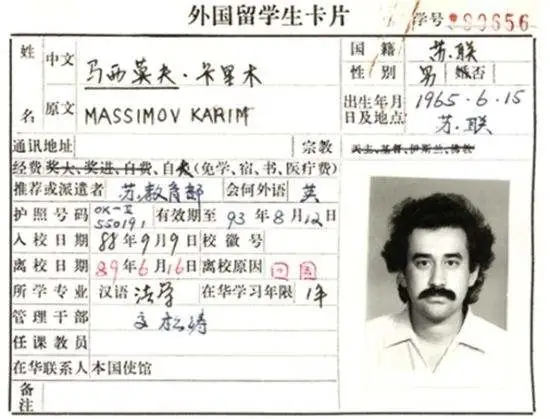 外国留学生卡片
学号 *89656
姓名 中文 马西莫夫·卡里木
原文 MASSIMOV KARIM
国籍 苏联
性别 男 婚否
出生年月日及地点 1965·6·15 苏·联
通讯地址 宗教 天主、基督、伊斯兰、佛教
经费 奖大、奖进、自费、自大(免学、宿、书、医疗费)
推荐或派遣者 苏教育部 会何外语 英
护照号码 OK-II 550191 有效期至 93年8月12日
入校日期 88年9月9日 校徽号
离校日期 89年6月16日 离校原因 回国
所学专业 汉语 法学 在华学习年限 1年
管理干部 松涛
任课教员
在华联系人 本国使馆
备注